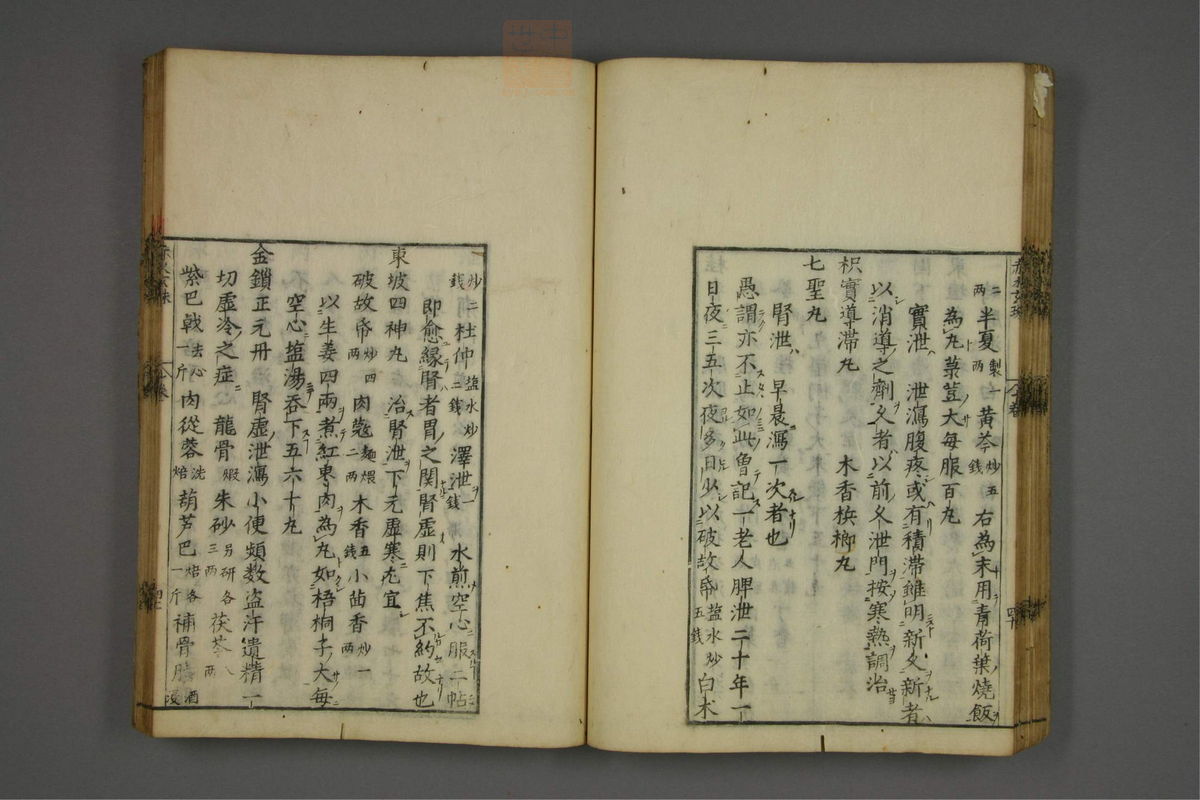 二両半夏製一両黄芩炒五銭右為末用青荷葉燒飯
為丸菉荳大每服百丸
實泄 泄瀉腹疼或有積滯雖明新久新者
以消導之劑久者以前久泄門按寒熱調治
枳實導滯丸 木香梹榔丸
七聖丸
腎泄 早晨瀉一次者也
愚謂亦不止如此曽記一老人脾泄二十年一
日夜三五次夜多日少以破故帋塩水炒五銭白朮
炒二銭杜仲塩水炒二銭澤泄一銭水煎空心服二帖
即愈縁腎者胃之関腎虛則下焦不約故也
東坡四神丸 治腎泄下元虛寒尤宜
破故帋炒四両肉蔲麺煨二両木香五銭小茴香炒一両
以生姜四兩煮紅棗肉為丸如梧桐子大每
空心塩湯吞下五六十丸
金鎖正元丹 腎虛泄瀉小便頻数盗汗遺精一
切虛冷之症 龍骨煅朱砂另研各三両茯苓八両
紫巴戟去心一斤肉從蓉洗焙葫芦巴焙各一斤補骨脂酒浸